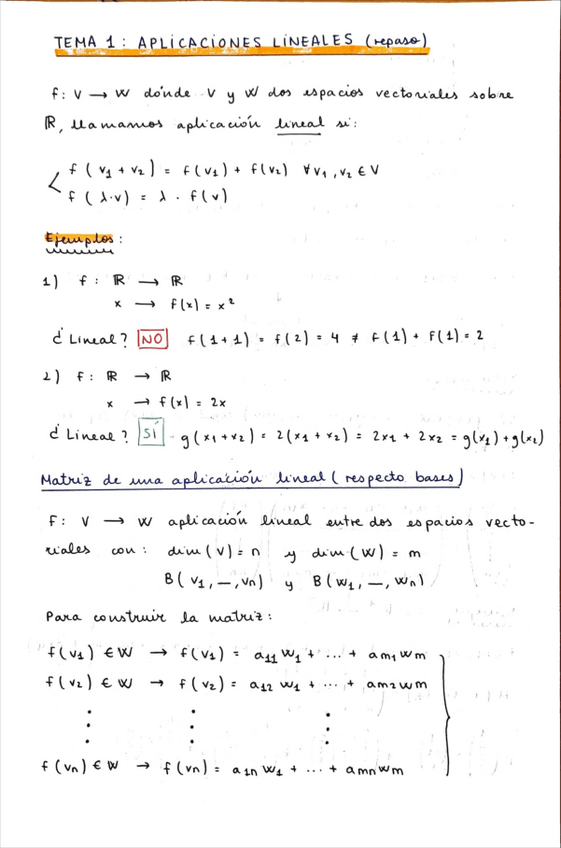 TEMA 1: APLICACIONES LINEALES (repaso)
f: V → W dónde V y W dos espacios vectoriales sobre
ℝ, llamamos aplicación lineal si:
f(v₁ + v₂) = f(v₁) + f(v₂) ∀v₁, v₂ ∈ V
f(λ·v) = λ · f(v)
Ejemplos:
1) f: ℝ → ℝ
x → f(x) = x²
¿Lineal? NO f(1+1) = f(2) = 4 ≠ f(1) + f(1) = 2
2) f: ℝ → ℝ
x → f(x) = 2x
¿Lineal? SÍ g(x₁+x₂) = 2(x₁ + x₂) = 2x₁ + 2x₂ = g(x₁) + g(x₂)
Matriz de una aplicación lineal (respecto bases)
f: V → W aplicación lineal entre dos espacios vecto-
riales con: dim(V) = n y dim(W) = m
B(v₁, —, vn) y B(w₁, —, wn)
Para construir la matriz:
f(v₁) ∈ W → f(v₁) = a₁₁ w₁ + ... + am₁ wm
f(v₂) ∈ W → f(v₂) = a₁₂ w₁ + ... + am₂ wm
⋮ ⋮ ⋮
f(vn) ∈ W → f(vn) = a₁n w₁ + ... + amn wm